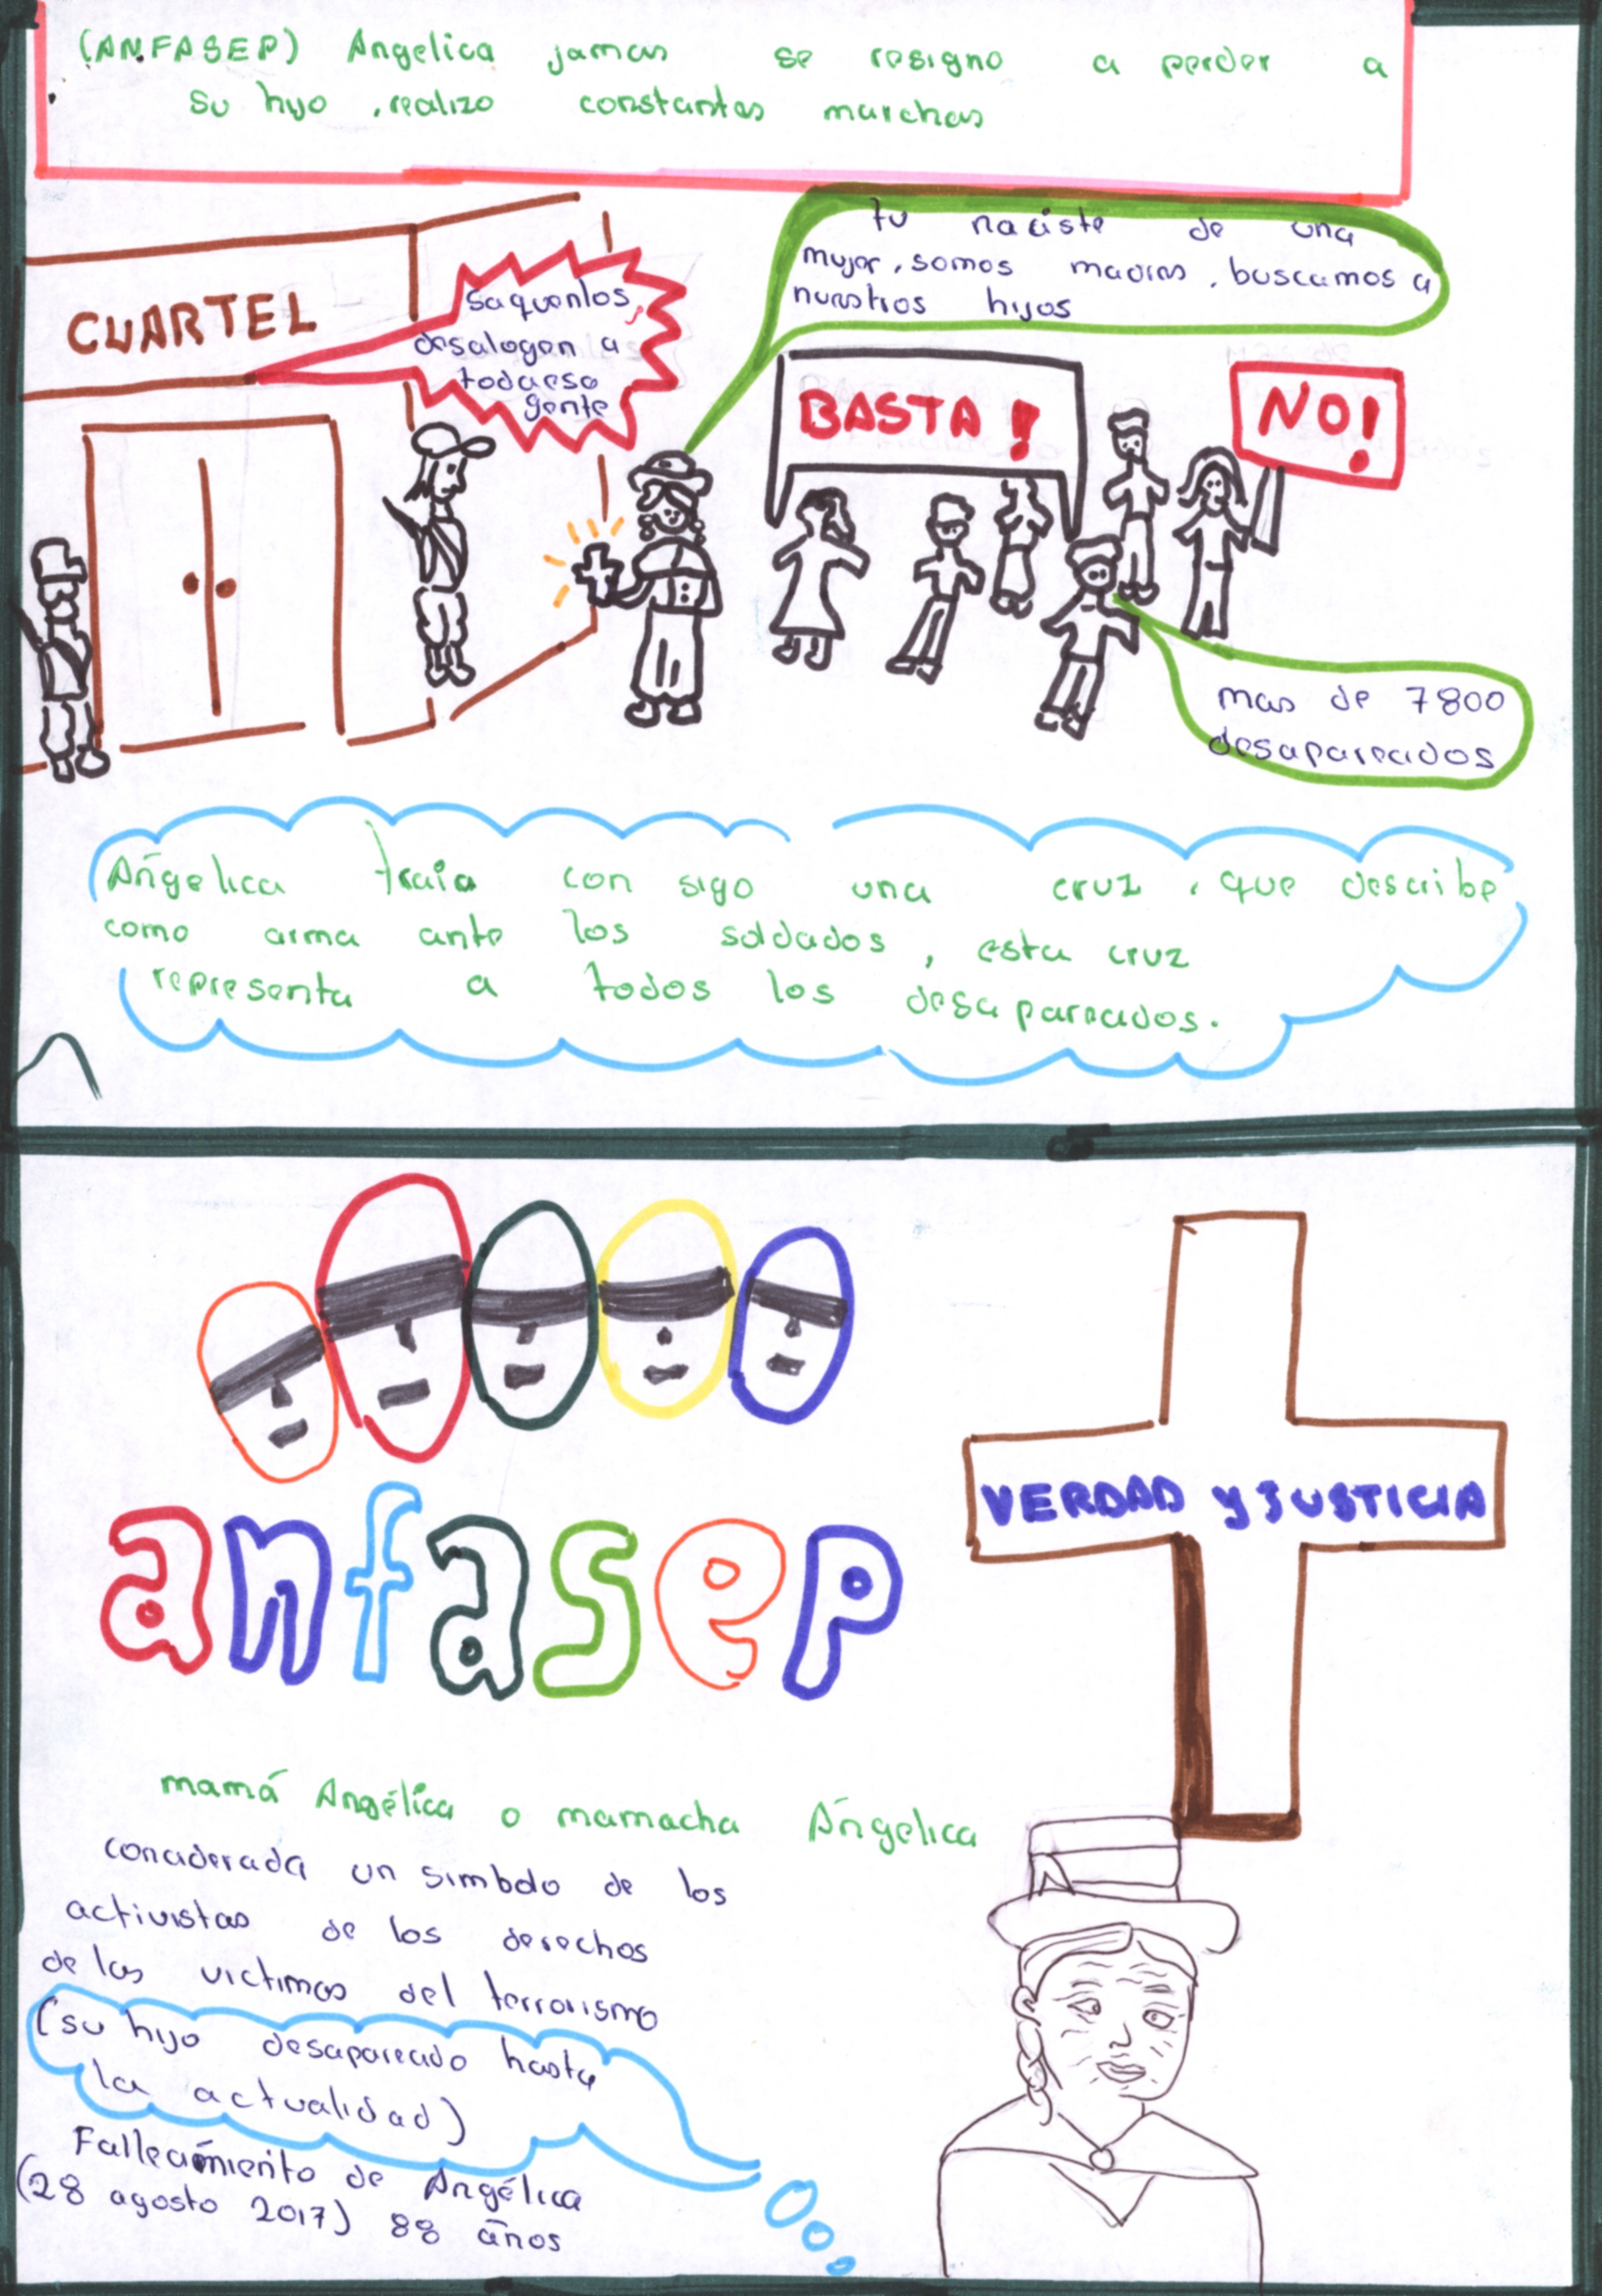 (ANFASEP) Angelica jamas se resigno a perder a
su hijo, realizo constantes marchas
CUARTEL
saquenlos,
desalogen a
toda esa
gente
tu naciste de una
mujer, somos madres, buscamos a
nuestros hijos
BASTA!
NO!
mas de 7800
desaparecidos
Ángelica traia con sigo una cruz, que describe
como arma ante los soldados, esta cruz
representa a todos los desaparecidos.
VERDAD Y JUSTICIA
anfasep
mamá Angélica o mamacha Ángelica
conciderada un simbolo de los
activistas de los derechos
de las victimas del terrorismo
(su hijo desaparecido hasta
la actualidad)
Fallecimiento de Angélica
(28 agosto 2017) 88 años